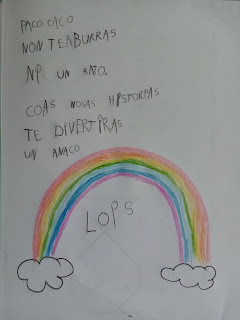 PACO CACO
NON TEABURRAS
NPI UN RATO.
COAS NOSAS HPSTORPAS
TE DIVERTPRAS
UN ANACO
LOPS